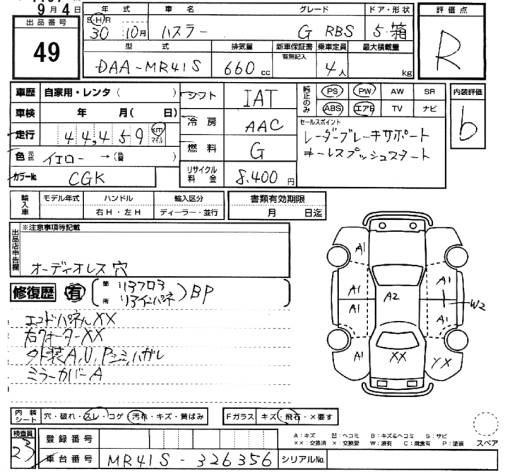 9月4日
出品番号 49
年式 車名 グレード ドア・形状
S・H・R 30 10月 ハスラー G RBS 5・箱
型式 排気量 新車保証書 有無記入 乗車定員 最大積載量
DAA-MR41S 660cc 4人 kg
評価点 R
車歴 自家用・レンタ( )
車検 年 月( )日
走行 44,459 km マイル
色 元色 イエロー →(替
カラーNo. CGK
シフト IAT
冷房 AAC
燃料 G
リサイクル料金 8.400円
純正のみ PS PW AW SR
ABS エアB TV ナビ
セールスポイント
レーダーブレーキサポート
キーレスプッシュスタート
内装評価 b
輸入車 モデル年式 ハンドル 輸入区分
右H・左H ディーラー・並行
書類有効期限
月 日迄
出品店申告欄 ※注意事項等記載
オーディオレス穴
修復歴 有 箇所 リアフロア リアインパネ BP
エンドパネルXX
右クォーターXX
外装A,U,P,シミ,ハガレ
ミラーカバーA
A1 A1 A1 A1 A1 A1 A2 W2 XX YX
内装シート 穴・破れ・スレ・コゲ 汚れ・キズ・黄ばみ
Fガラス キズ・飛石・×要す
検査員 23
登録番号
車台番号 MR41S-326356 シリアルNo.
A:キズ U:ヘコミ B:キズ&ヘコミ S:サビ
XX:交換済 X:交換要 W:波有 C:腐食有 P:塗装
スペア